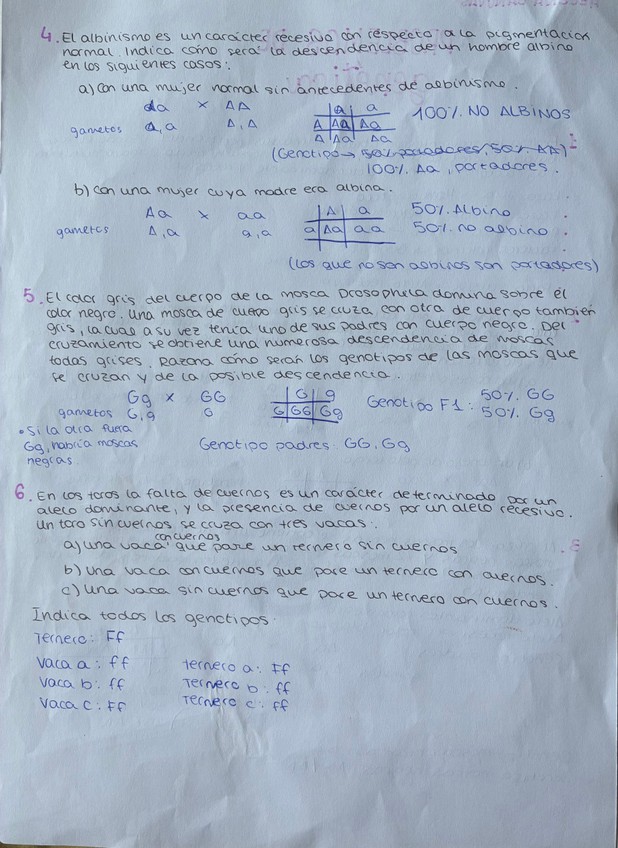 4. El albinismo es un carácter recesivo con respecto a la pigmentación
normal. Indica cómo será la descendencia de un hombre albino
en los siguientes casos:
a) Con una mujer normal sin antecedentes de albinismo.
aa x AA
gametos A, a A, A
a a
A Aa Aa
A Aa Aa
100% NO ALBINOS
(Genotipo → 50% portadores, 50% AA)
100% Aa, portadores.
b) con una mujer cuya madre era albina.
Aa x aa
gametos A, a a, a
A a
a Aa aa
50% Albino
50% no albino
(Los que no son albinos son portadores)
5. El color gris del cuerpo de la mosca Drosophula domina sobre él
color negro. Una mosca de cuepo gris se cruza con otra de cuerpo también
gris, la cual a su vez tenía uno de sus padres con cuerpo negro. Del
cruzamiento se obtiene una numerosa descendencia de moscas
todas grises. Razona cómo serán los genotipos de las moscas que
se cruzan y de la posible descendencia.
Gg x GG
gametos G, g G
G g
G GG Gg
Genotipo F1: 50% GG
50% Gg
• Si la otra fuera
Gg, habría moscas
negras
Genotipo padres: GG, Gg
6. En los toros la falta de cuernos es un carácter determinado por un
alelo dominante, y la presencia de cuernos por un alelo recesivo.
Un toro sin cuernos se cruza con tres vacas:
con cuernos
a) una vaca que pare un ternero sin cuernos
b) Una vaca con cuernos que pare un ternero con cuernos.
c) Una vaca sin cuernos que pare un ternero con cuernos.
Indica todos los genotipos
Ternero: Ff
Vaca a: ff ternero a: Ff
Vaca b: ff Ternero b: ff
Vaca c: Ff Ternero c: ff